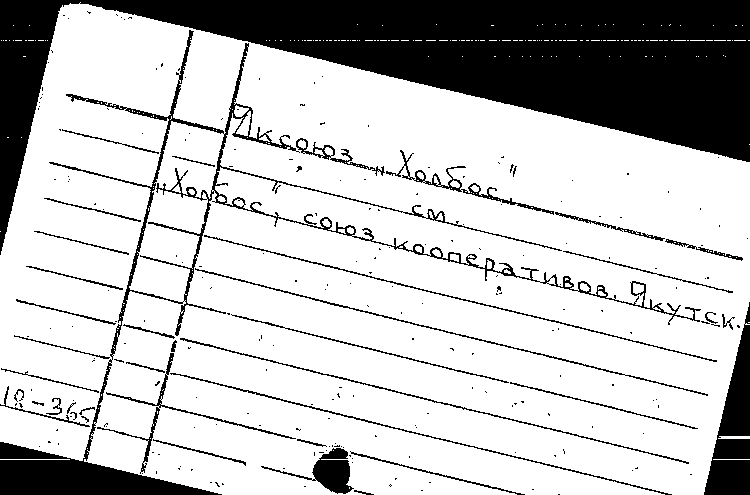 Яксоюз „Холбос".
см.
„Холбос", союз кооперативов. Якутск.
18-365